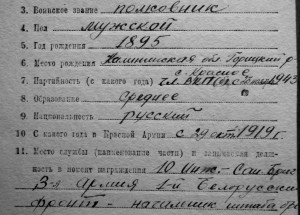 3. Воинское звание полковник
4. Пол мужской
5. Год рождения 1895
6. Место рождения Калининская обл. Горицкий р-
с. Красное
7. Партийность (с какого года) чл. ВКП(б) с 1943
8. Образование среднее
9. Национальность русский
10. С какого года в Красной Армии с 29 окт 1919 г.
11. Место службы (наименование части) и занимаемая долж-
ность в момент награждения 10 Инж.-Сап. Бриг
3-я Армия 1-й Белорусский
фронт - начальник штаба бр.